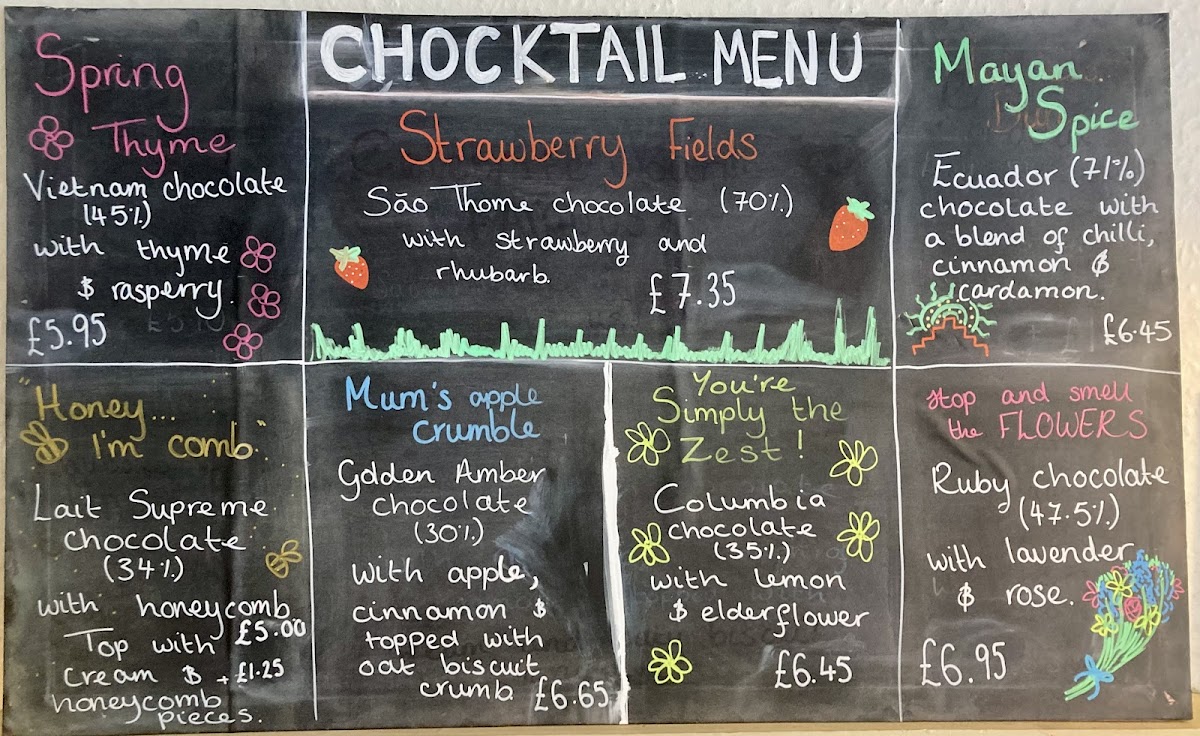 CHOCKTAIL MENU
Spring
Thyme
Vietnam chocolate
(45%)
with thyme
& rasperry.
£5.95
Strawberry Fields
São Thome chocolate (70%)
with strawberry and
rhubarb.
£7.35
Mayan
Spice
Ecuador (71%)
chocolate with
a blend of chilli,
cinnamon &
cardamon.
£6.45
"Honey...
I'm comb"
Lait Supreme
chocolate
(34%)
with honeycomb
£5.00
Top with
cream & +£1.25
honeycomb
pieces.
Mum's apple
crumble
Golden Amber
chocolate
(30%)
with apple,
cinnamon &
topped with
oat biscuit
crumb £6.65
You're
Simply the
Zest!
Columbia
chocolate
(35%)
with lemon
& elderflower
£6.45
Stop and smell
the FLOWERS
Ruby chocolate
(47.5%)
with lavender
& rose.
£6.95